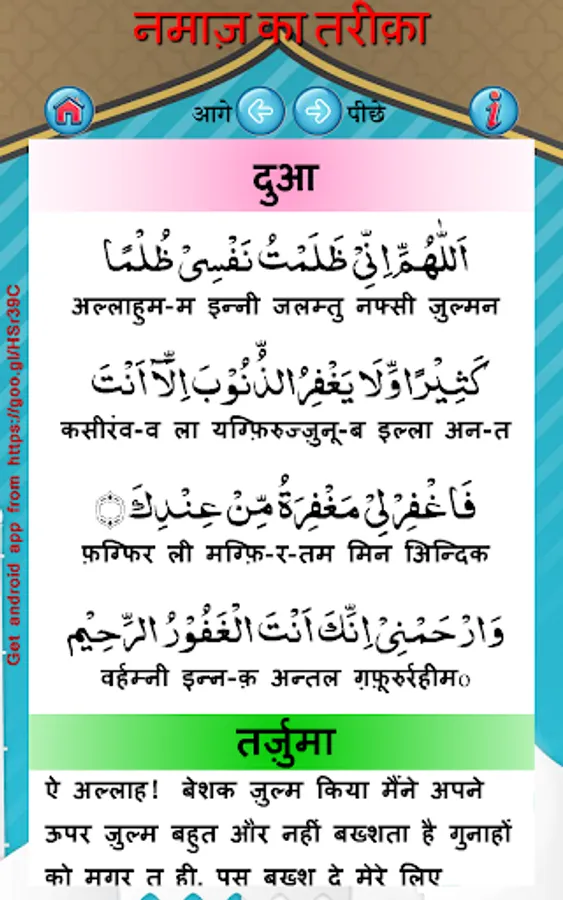 नमाज़ का तरीक़ा
आगे पीछे
दुआ
اَللّٰهُمَّ اِنِّیْ ظَلَمْتُ نَفْسِیْ ظُلْمًا
अल्लाहुम-म इन्नी जलम्तु नफ्सी ज़ुल्मन
كَثِیْرًا وَّلَا یَغْفِرُ الذُّنُوْبَ اِلَّاۤ اَنْتَ
कसीरंव-व ला यग्फ़िरुज्ज़ुनू-ब इल्ला अन-त
فَاغْفِرْلِیْ مَغْفِرَةً مِّنْ عِنْدِكَ
फ़ग्फिर ली मग्फ़ि-र-तम मिन अिन्दिक
وَارْحَمْنِیْ اِنَّكَ اَنْتَ الْغَفُوْرُ الرَّحِیْم
वर्हम्नी इन्न-क़ अन्तल ग़फ़ूरुर्रहीम०
तर्ज़ुमा
ऐ अल्लाह! बेशक ज़ुल्म किया मैंने अपने
ऊपर ज़ुल्म बहुत और नहीं बख्शता है गुनाहों
को मगर त ही. पस बख्श दे मेरे लिए
Get android app from https://goo.gl/HSr39C